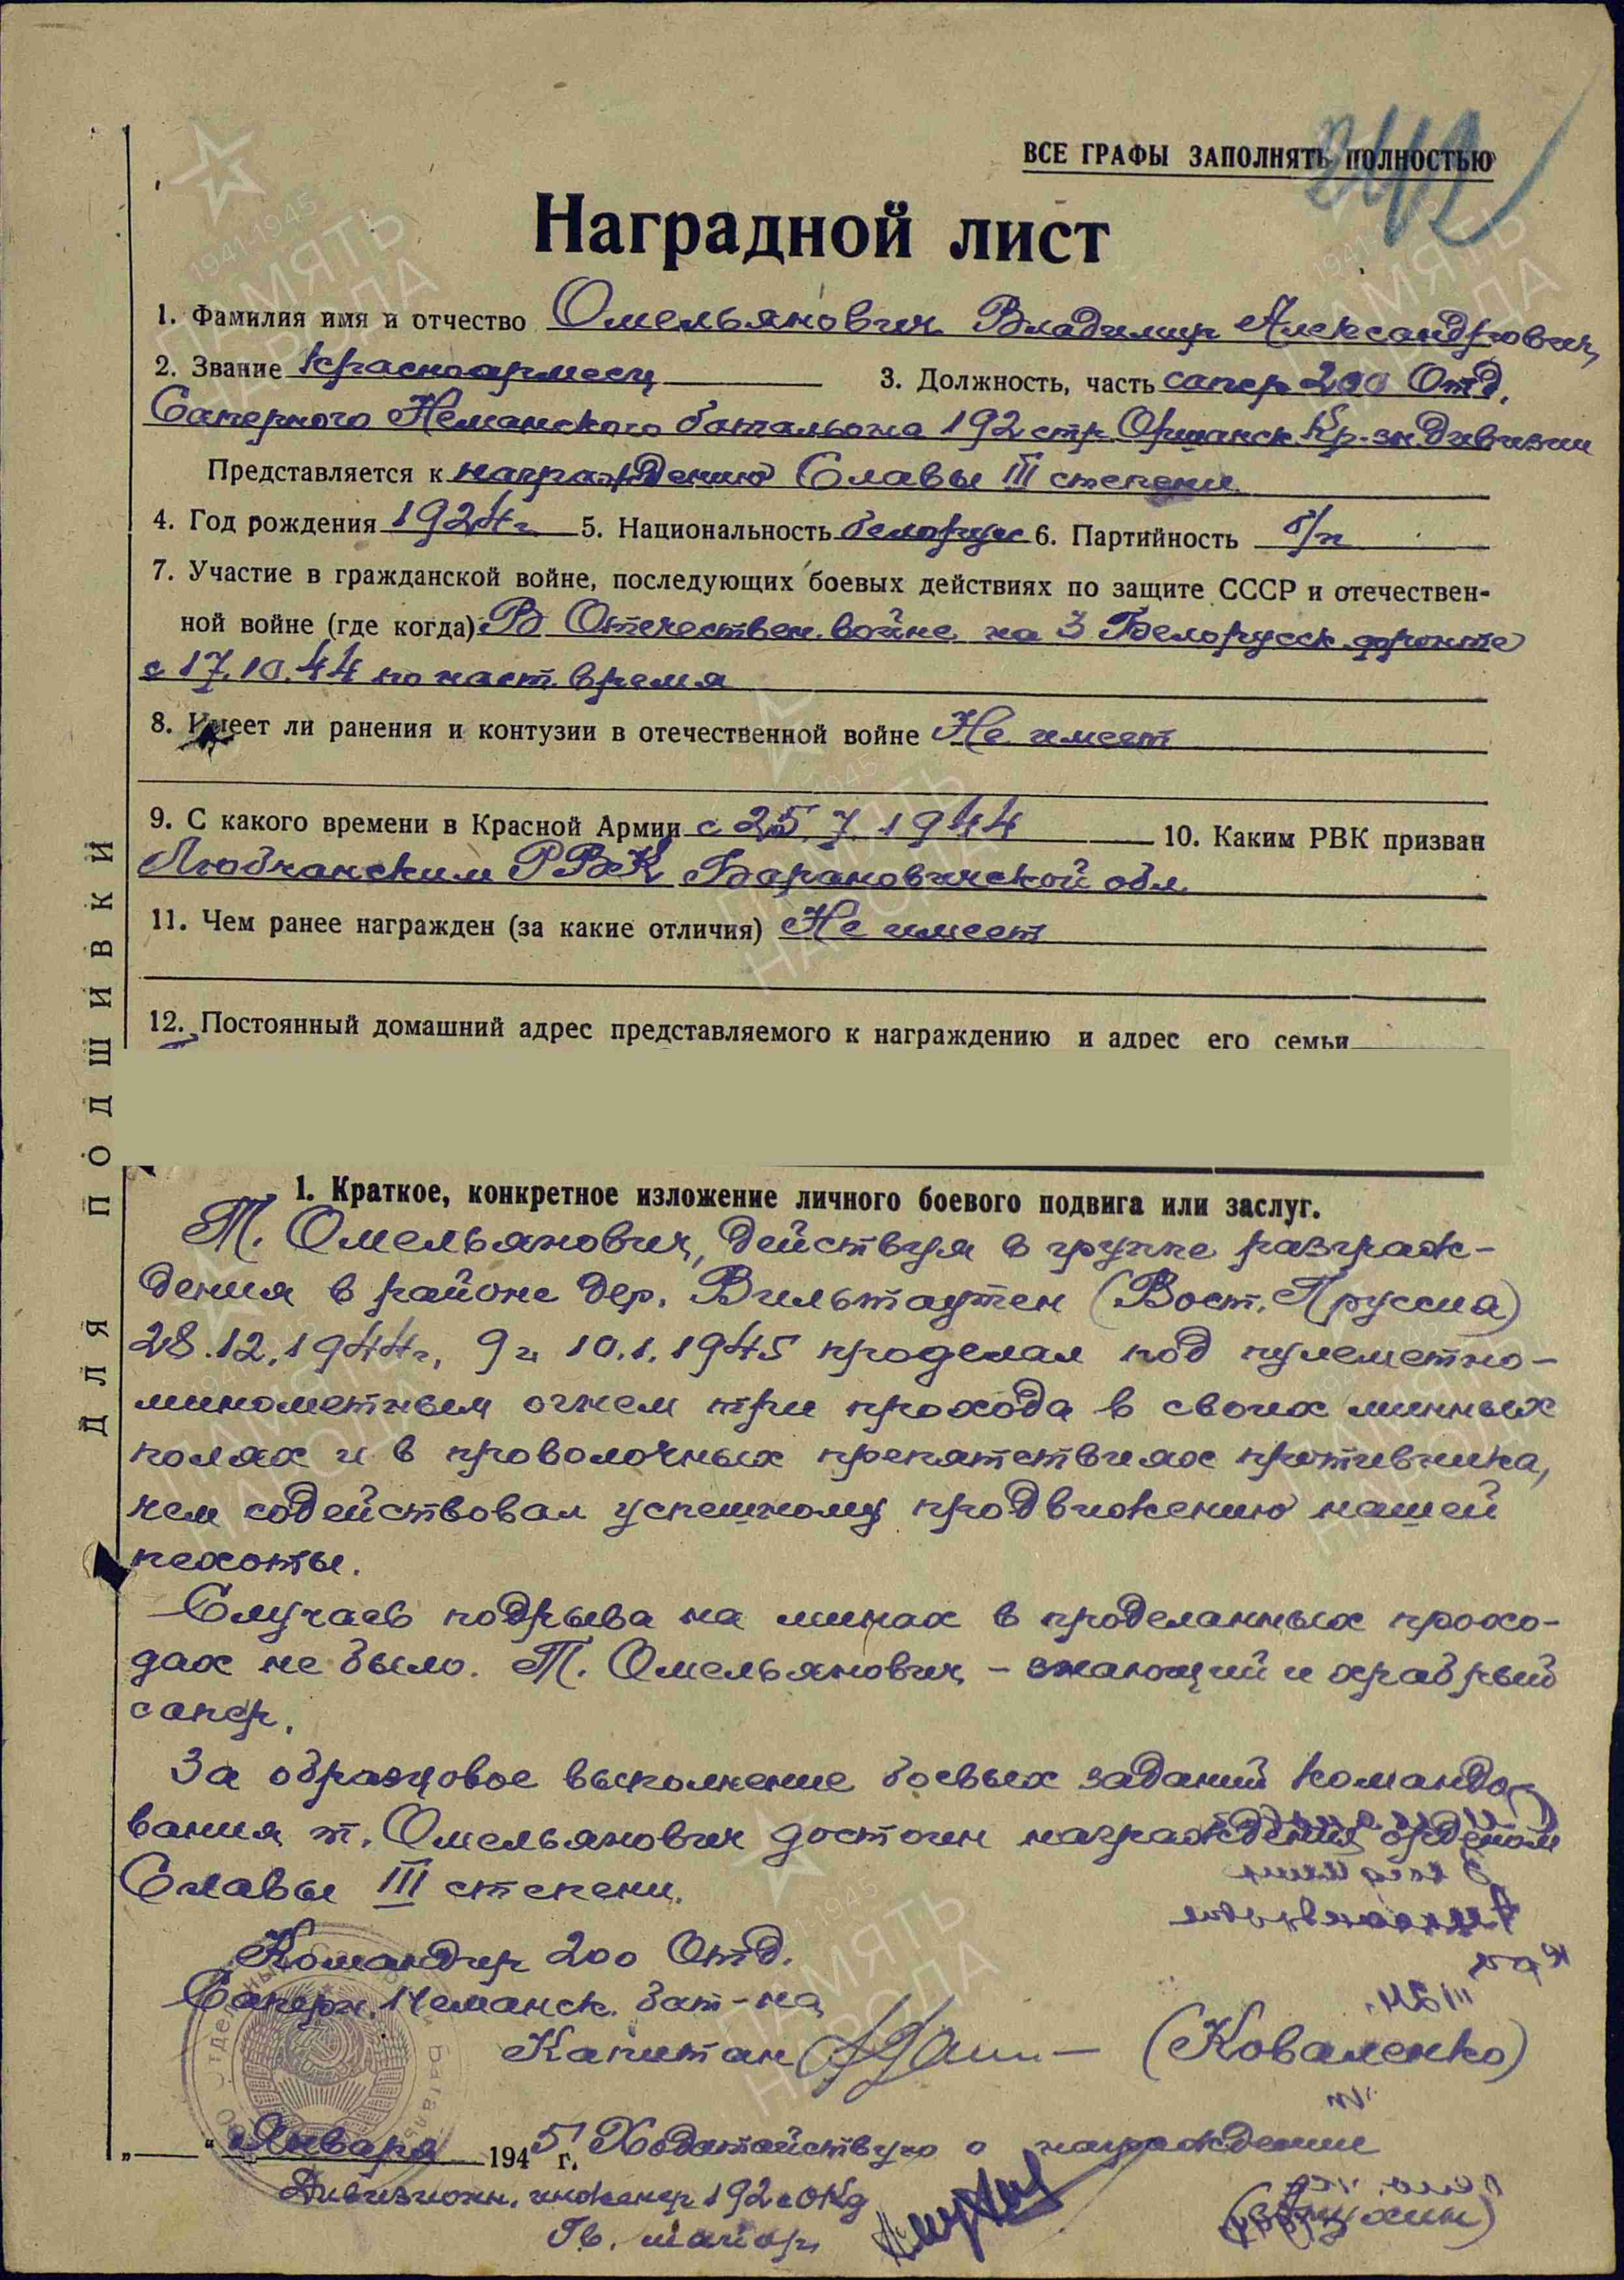 ВСЕ ГРАФЫ ЗАПОЛНЯТЬ ПОЛНОСТЬЮ
Наградной лист
1. Фамилия имя и отчество Омельянович Владимир Александрович,
2. Звание Красноармеец 3. Должность, часть сапер 200 Отд.
Саперного Неманского батальона 192 стр. Оршанск. Кр-зн. дивизии
Представляется к награждению Славы III степени
4. Год рождения 1924 г. 5. Национальность белорус 6. Партийность б/п
7. Участие в гражданской войне, последующих боевых действиях по защите СССР и отечествен-
ной войне (где когда) В Отечествен. войне на 3 Белорусск. фронте
с 17.10.44 по наст. время
8. Имеет ли ранения и контузии в отечественной войне Не имеет
9. С какого времени в Красной Армии с 25.7.1944 10. Каким РВК призван
Любчанским РВК Барановичской обл.
11. Чем ранее награжден (за какие отличия) Не имеет
12. Постоянный домашний адрес представляемого к награждению и адрес его семьи
ДЛЯ ПОДШИВКИ
1. Краткое, конкретное изложение личного боевого подвига или заслуг.
Т. Омельянович, действуя в группе разграж-
дения в районе дер. Вильтаутен (Вост. Пруссия)
28.12.1944 г., 9 и 10.1.1945 проделал под пулеметно-
минометным огнем три прохода в своих минных
полях и в проволочных препятствиях противника,
чем содействовал успешному продвижению нашей
пехоты.
Случаев подрыва на минах в проделанных прохо-
дах не было. Т. Омельянович - знающий и храбрый
сапер.
За образцовое выполнение боевых заданий командо-
вания т. Омельянович достоин награждения орденом
Славы III степени.
Командир 200 Отд.
Саперн. Неманск. бат-на
Капитан (Коваленко)
„ “ Января 1945 г. Ходатайствую о награждении
Дивизионн. инженер 192 сОКд
Гв. майор
1941-1945
ПАМЯТЬ
НАРОДА